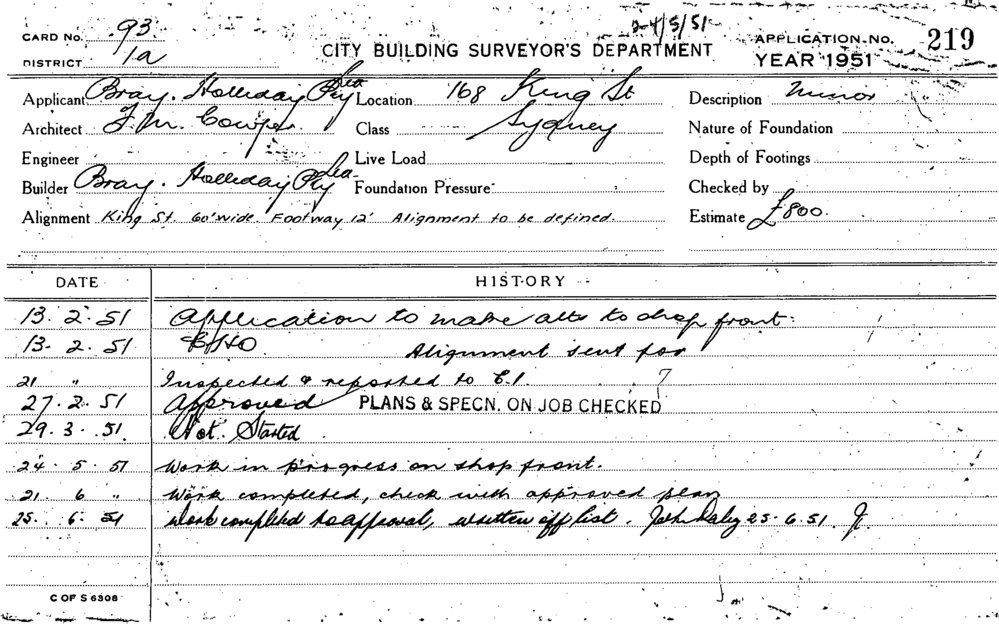 24/5/51
CARD No. 93 CITY BUILDING SURVEYOR'S DEPARTMENT APPLICATION No. 219
DISTRICT 1a YEAR 1951
Applicant Bray. Holliday Pty Location 168 King St Description Minor
Architect F. M. Cowper Class Sydney Nature of Foundation
Engineer Live Load Depth of Footings
Builder Bray. Holliday Pty Foundation Pressure Checked by
Alignment King St. 60' wide. Footway 12' Alignment to be defined. Estimate £800.
DATE HISTORY
13. 2. 51 Application to make alts to shop front.
13. 2. 51 Alignment sent for
21 " Inspected & reported to C.I. 7
27. 2. 51 Approved PLANS & SPECN. ON JOB CHECKED
29. 3. 51. Not Started
24. 5. 51 Work in progress on shop front.
21. 6 " Work completed, check with approved plan
25. 6. 51 Work completed to approval, written off list. John 25.6.51.
C OF S 6306